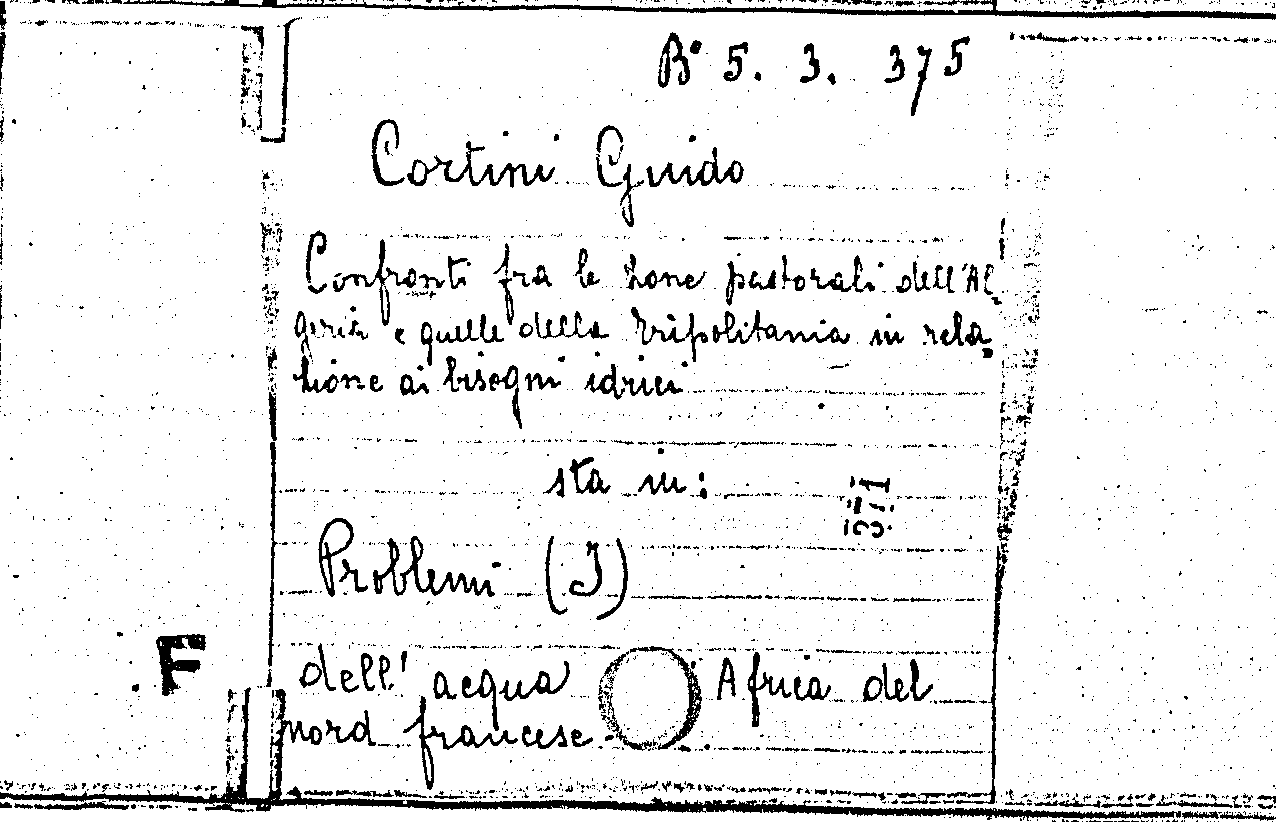 B° 5. 3. 375
Cortini Guido
Confronti fra le zone pastorali dell'Al-
geria e quelle della Tripolitania in rela-
zione ai bisogni idrici
sta in:
371
Problemi (I)
F
dell' acqua Africa del
nord francese.